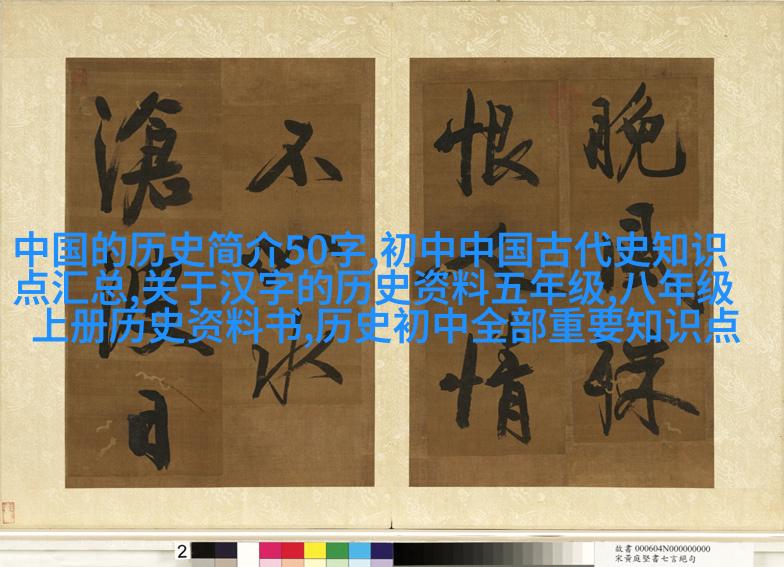 晚風殊
恨情
不水
滄日
中国的历史简介50字,初中中国古代史知识
点汇总,关于汉字的历史资料五年级,八年级
上册历史资料书,历史初中全部重要知识点
2
故書 000604N000000000
宋黃庭堅書七言絕句